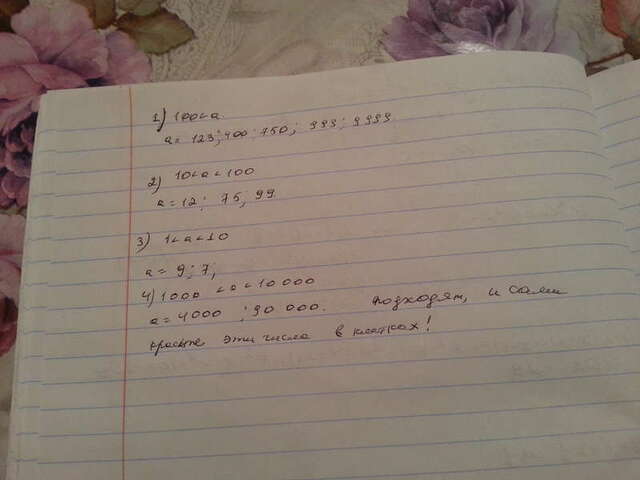 1) 100<a
a = 123; 400; 750; 993; 9999
2) 10<a<100
a = 12; 75; 99
3) 1<a<10
a = 9; 7;
4) 1000 <a<10000
a = 4000 ; 90 000. подходят, и сами
красьте эти числа в клетках!